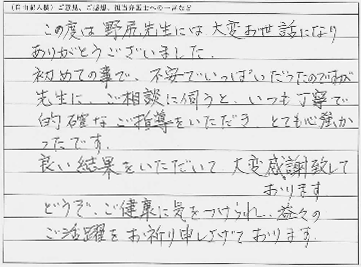 (自由記入欄)ご意見、ご感想、担当弁護士への一言など
この度は野尻先生には大変お世話になり
ありがとうございました。
初めての事で、不安でいっぱいだったのですが
先生に、ご相談に伺うと、いつも丁寧で
的確なご指導をいただき とても心強か
ったです。
良い結果をいただいて 大変感謝致して
おります
どうぞ、ご健康に気をつけられ、益々の
ご活躍をお祈り申し上げております。